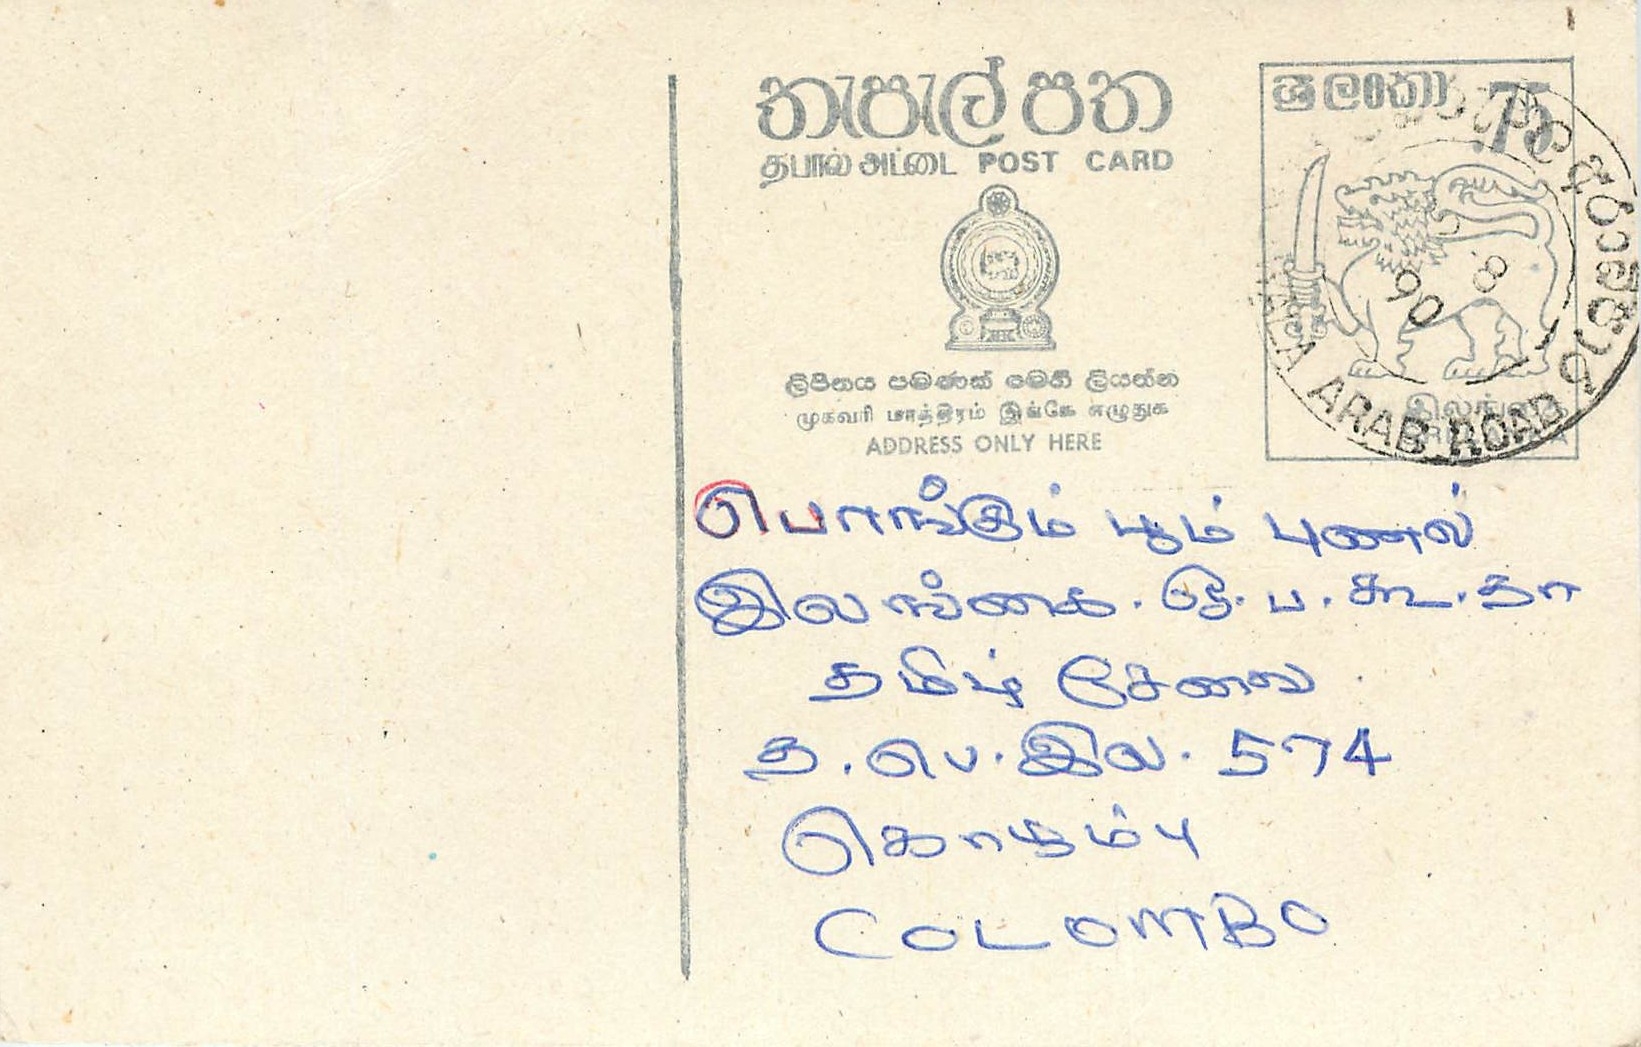 තැපැල් පත
தபால் அட்டை POST CARD
ලිපිනය පමණක් මෙහි ලියන්න
முகவரி மாத்திரம் இங்கே எழுதுக
ADDRESS ONLY HERE
ශ්‍රී ලංකා 75
இலங்கை
SRI LANKA
8
90
ARAB ROAD
பொங்கும் பூம் புணல்
இலங்கை. ஒ. ப. கூ. தா
தமிழ் சேவை
த. பெ. இல. 574
கொழும்பு
COLOMBO